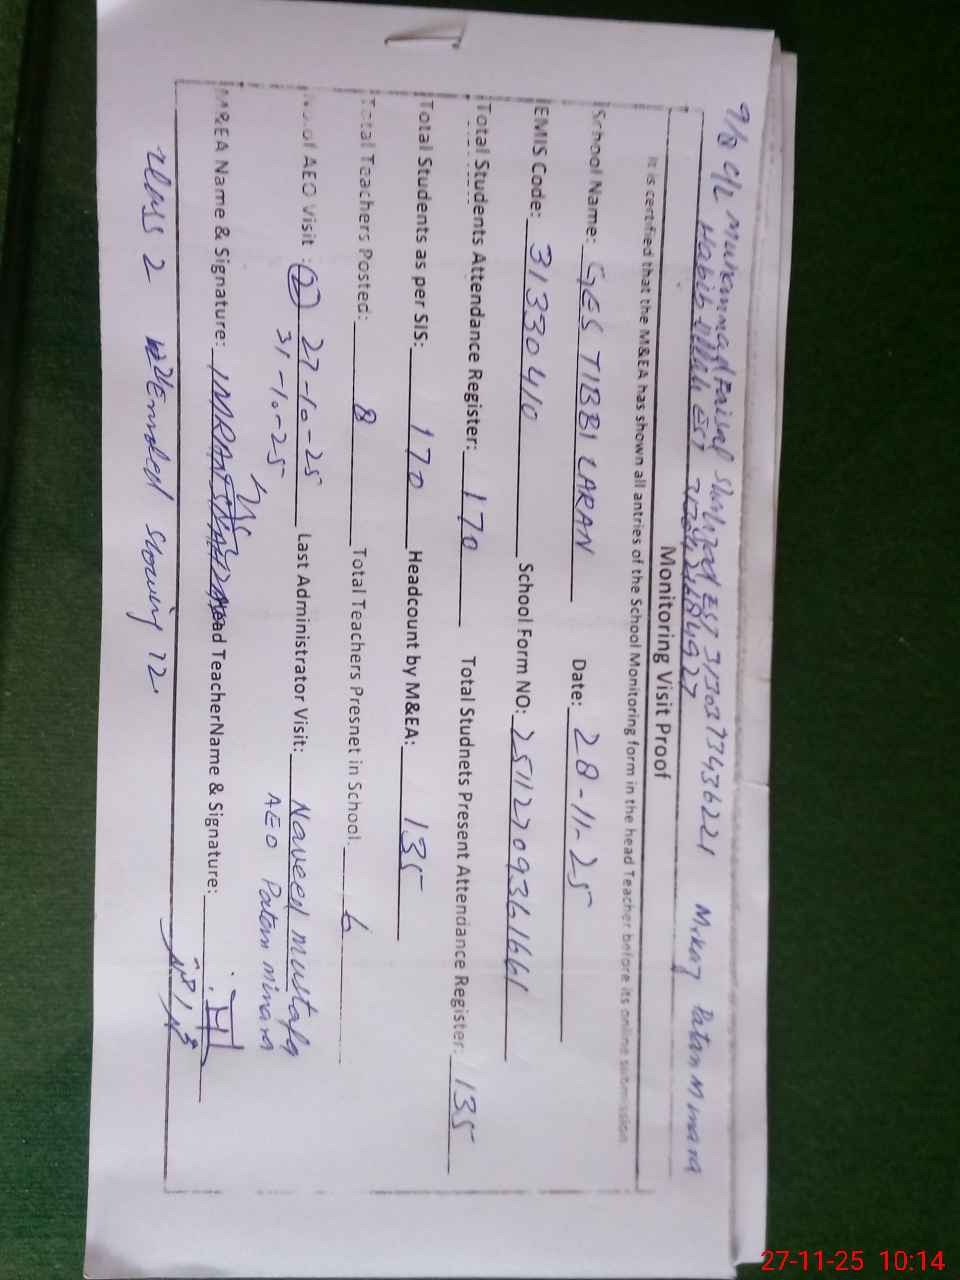 9/8 C/L Muhammad Faisal Shahzad EST 3130373436221 Markaz Patan Minara
Habib Ullah EST
Monitoring Visit Proof
It is certified that the M&EA has shown all antries of the School Monitoring form in the head Teacher before its online submission
School Name: GES TIBBI LARAN Date: 28-11-25
EMIS Code: 31330410 School Form NO: 25112709361661
Total Students Attendance Register: 170 Total Studnets Present Attendance Register: 135
Total Students as per SIS: 170 Headcount by M&EA: 135
Total Teachers Posted: 8 Total Teachers Presnet in School. 6
No.of AEO Visit : 2 27-10-25 Last Administrator Visit: Naveed Mustafa
31-10-25 AEO Patan minara
M&EA Name & Signature: IMRAN Head TeacherName & Signature:
class 2 showing 12
27-11-25 10:14